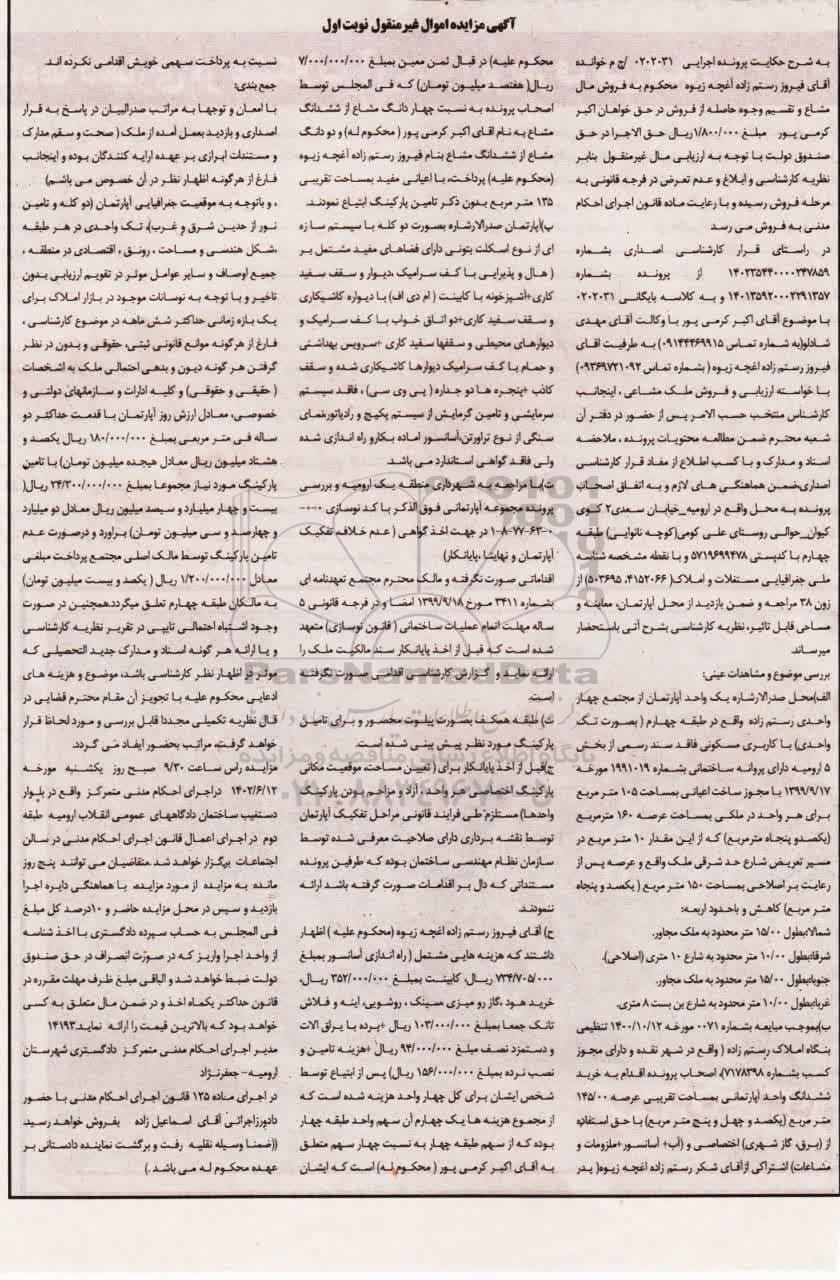 آگهی مزایده اموال غیرمنقول نوبت اول
به شرح حکایت پرونده اجرایی ۰۲۰۲۰۳۱ /ج م خوانده
آقای فیروز رستم زاده آغچه زیوه محکوم به فروش مال
مشاع و تقسیم وجوه حاصله از فروش در حق خواهان اکبر
کرمی پور مبلغ ۱/۸۰۰/۰۰۰ ریال حق الاجرا در حق
صندوق دولت با توجه به ارزیابی مال غیرمنقول بنابر
نظریه کارشناسی و ابلاغ و عدم تعرض در فرجه قانونی به
مرحله فروش رسیده و با رعایت ماده قانون اجرای احکام
مدنی به فروش می رسد
در راستای قرار کارشناسی اصداری بشماره
۱۴۰۲۳۵۴۴۰۰۰۰۲۴۷۸۵۹ از پرونده بشماره
۱۴۰۱۳۵۹۲۰۰۰۲۲۹۱۳۵۷ و به کلاسه بایگانی ۰۲۰۲۰۳۱
با موضوع آقای اکبر کرمی پور با وکالت آقای مهدی
شادلو(به شماره تماس ۰۹۱۴۴۴۶۹۹۱۵) به طرفیت اقای
فیروز رستم زاده اغچه زیوه ( بشماره تماس ۰۹۳۶۹۷۲۱۰۹۲)
با خواسته ارزیابی و فروش ملک مشاعی ، اینجانب
کارشناس منتخب حسب الامر پس از حضور در دفتر آن
شعبه محترم ضمن مطالعه محتویات پرونده ، ملاحضه
اسناد و مدارک و با کسب اطلاع از مفاد قرار کارشناسی
اصداری،ضمن هماهنگی های لازم و به اتفاق اصحاب
پرونده به محل واقع در ارومیه_خیابان سعدی۲ کوی
کیوان_حوالی روستای علی کومی(کوچه نانوایی) طبقه
چهارم با کدپستی ۵۷۱۹۶۹۹۴۷۸ و با نقطه مشخصه شناسه
ملی جغرافیایی مستغلات و املاک( ۴۱۵۲۰۶۶، ۵۰۳۶۹۵) از
زون ۳۸ مراجعه و ضمن بازدید از محل آپارتمان، معاینه و
مساحی قابل تاثیر، نظریه کارشناسی بشرح آتی باستحضار
میرساند.
بررسی موضوع و مشاهدات عینی:
الف)محل صدرالارشاره یک واحد آپارتمان از مجتمع چهار
واحدی رستم زاده واقع در طبقه چهارم ( بصورت تک
واحدی) با کاربری مسکونی فاقد سند رسمی از بخش
۵ ارومیه دارای پروانه ساختمانی بشماره ۱۹۹۱۰۱۹ مورخه
۱۳۹۹/۹/۱۷ با مجوز ساخت اعیانی بمساحت ۱۰۵ متر مربع
برای هر واحد در ملکی بمساحت عرصه ۱۶۰ مترمربع
(یکصدو پنجاه مترمربع) که از این مقدار ۱۰ متر مربع در
مسیر تعریض شارع حد شرقی ملک واقع و عرصه پس از
رعایت بر اصلاحی بمساحت ۱۵۰ متر مربع ( یکصد و پنجاه
متر مربع) کاهش و باحدود اربعه:
شمالا:بطول ۱۵/۰۰ متر محدود به ملک مجاور.
شرقا:بطول ۱۰/۰۰ متر محدود به شارع ۱۰ متری (اصلاحی).
جنوبا:بطول ۱۵/۰۰ متر محدود به ملک مجاور.
غربا:بطول ۱۰/۰۰ متر محدود به شارع بن بست ۸ متری.
ب)بموجب مبایعه بشماره ۰۰۷۱ مورخه ۱۴۰۰/۱۰/۱۲ تنظیمی
بنگاه املاک رستم زاده ( واقع در شهر نقده و دارای مجوز
کسب بشماره ۷۱۷۸۳۹۸)، اصحاب پرونده اقدام به خرید
ششدانگ واحد آپارتمانی بمساحت تقریبی عرصه ۱۴۵/۰۰
متر مربع (یکصد و چهل و پنج متر مربع) با حق استفاده
از (برق، گاز شهری) اختصاصی و (آب+ آسانسور+ملزومات و
مشاعات) اشتراکی ازآقای شکر رستم زاده اغچه زیوه( پدر
محکوم علیه) در قبال ثمن معین بمبلغ ۷/۰۰۰/۰۰۰/۰۰۰
ریال( هفتصد میلیون تومان) که فی المجلس توسط
اصحاب پرونده به نسبت چهار دانگ مشاع از ششدانگ
مشاع به نام اقای اکبر کرمی پور ( محکوم له) و دو دانگ
مشاع از ششدانگ مشاع بنام فیروز رستم زاده آغچه زیوه
(محکوم علیه) پرداخت، با اعیانی مفید بمساحت تقریبی
۱۳۵ متر مربع بدون ذکر تامین پارکینگ ابتیاع نمودند.
پ)آپارتمان صدرالارشاره بصورت دو کله با سیستم سا زه
ای از نوع اسکلت بتونی دارای فضاهای مفید مشتمل بر
( هال و پذیرایی با کف سرامیک ،دیوار و سقف سفید
کاری+آشپزخونه با کابینت ( ام دی اف) با دیواره کاشیکاری
و سقف سفید کاری+دو اتاق خواب با کف سرامیک و
دیوارهای محیطی و سقفها سفید کاری +سرویس بهداشتی
و حمام با کف سرامیک دیوارها کاشیکاری شده و سقف
کاذب +پنجره ها دو جداره ( پی وی سی) ، فاقد سیستم
سرمایشی و تامین گرمایش از سیستم پکیج و رادیاتورنمای
سنگی از نوع تراورتن،آسانسور اماده بکارو راه اندازی شده
ولی فاقد گواهی استاندارد می باشد.
ت)با مراجعه به شهرداری منطقه یک ارومیه و بررسی
پرونده مجموعه آپارتمانی فوق الذکر با کد نوسازی ۰-۰۰-
۰-۶۳-۷۷-۸-۱ در جهت اخذ گواهی ( عدم خلاف، تفکیک
آپارتمان و نهایتا ،پایانکار)
اقداماتی صورت نگرفته و مالک محترم مجتمع تعهدنامه ای
بشماره ۳۴۱۱ مورخ ۱۳۹۹/۹/۱۸ امضا و در فرجه قانونی ۵
ساله مهلت اتمام عملیات ساختمانی ( قانون نوسازی) متعهد
شده است که قبل از اخذ پایانکار سند مالکیت ملک را
ارائه نماید و گزارش کارشناسی اقدامی صورت نگرفته
است.
ث) طبقه همکف بصورت پیلوت محصور و برای تامین
پارکینگ مورد نظر پیش بینی شده است.
ج)قبل از اخذ پایانکار برای ( تعیین مساحت، موقعیت مکانی
پارکینگ اختصاصی هر واحد ، آزاد و مزاحم بودن پارکینگ
واحدها) مستلزم طی فرایند قانونی مراحل تفکیک آپارتمان
توسط نقشه برداری دارای صلاحیت معرفی شده توسط
سازمان نظام مهندسی ساختمان بوده که طرفین پرونده
مستنداتی که دال بر اقدامات صورت گرفته باشد ارائه
ننمودند.
ح) آقای فیروز رستم زاده اغچه زیوه (محکوم علیه ) اظهار
داشتند که هزینه هایی مشتمل ( راه اندازی آسانسور بمبلغ
۷۳۴/۷۰۵/۰۰۰ ریال، کابینت بمبلغ ۳۵۲/۰۰۰/۰۰۰ ریال،
خرید هود ،گاز رو میزی سینک ، روشویی، اینه و فلاش
تانک جمعا بمبلغ ۱۰۳/۰۰۰/۰۰۰ ریال +پرده با یراق الات
و دستمزد نصف مبلغ ۹۴/۰۰۰/۰۰۰ ریال +هزینه تامین و
نصب نرده بمبلغ ۱۵۶/۰۰۰/۰۰۰ ریال) پس از ابتیاع توسط
شخص ایشان برای کل چهار واحد هزینه شده است که
از مجموع هزینه ها یک چهارم آن سهم واحد طبقه چهار
بوده که از سهم طبقه چهار به نسبت چهار سهم متعلق
به آقای اکبر کرمی پور ( محکوم له) است که ایشان
نسبت به پرداخت سهمی خویش اقدامی نکرده اند.
جمع بندی:
با امعان و توجها به مراتب صدرالبیان در پاسخ به قرار
اصداری و بازدید بعمل آمده از ملک ( صحت و سقم مدارک
و مستندات ابرازی بر عهده ارایه کنندگان بوده و اینجانب
فارغ از هرگونه اظهار نظر در آن خصوص می باشم)
، و باتوجه به موقعیت جغرافیایی آپارتمان (دو کله و تامین
نور از حدین شرق و غرب)، تک واحدی در هر طبقه
،شکل هندسی و مساحت ، رونق ، اقتصادی در منطقه ،
جمیع اوصاف و سایر عوامل موثر در تقویم ارزیابی بدون
تاخیر و با توجه به نوسانات موجود در بازار املاک برای
یک بازه زمانی حداکثر شش ماهه در موضوع کارشناسی ،
فارغ از هرگونه موانع قانونی ثبتی، حقوقی و بدون در نظر
گرفتن هر گونه دیون و بدهی احتمالی ملک به اشخصات
( حقیقی و حقوقی) و کلیه ادارات و سازمانهای دولتی و
خصوصی، معادل ارزش روز آپارتمان با قدمت حداکثر دو
ساله فی متر مربعی بمبلغ ۱۸۰/۰۰۰/۰۰۰ ریال یکصد و
هشتاد میلیون ریال معادل هیجده میلیون تومان) با تامین
پارکینگ مورد نیاز مجموعا بمبلغ ۲۴/۳۰۰/۰۰۰/۰۰۰ ریال(
بیست و چهار میلیارد و سیصد میلیون ریال معادل دو میلیارد
و چهارصد و سی میلیون تومان) براورد و درصورت عدم
تامین پارکینگ توسط مالک اصلی مجتمع پرداخت مبلغی
معادل ۱/۲۰۰/۰۰۰/۰۰۰ ریال ( یکصد و بیست میلیون تومان)
به مالکان طبقه چهارم تعلق میگردد.همچنین در صورت
وجود اشتباه احتمالی تایپی در تقریر نظریه کارشناسی
و یا ارائه هر گونه اسناد و مدارک جدید التحصیلی که
موثر در اظهار نظر کارشناسی باشد، موضوع و هزینه های
ادعایی محکوم علیه با تجویز آن مقام محترم قضایی در
قال نظریه تکمیلی مجددا قابل بررسی و مورد لحاظ قرار
خواهد گرفت، مراتب بحضور ایفاد می گردد.
مزایده راس ساعت ۹/۳۰ صبح روز یکشنبه مورخه
۱۴۰۲/۶/۱۲ دراجرای احکام مدنی متمرکز واقع در بلوار
دستغیب ساختمان دادگاههای عمومی انقلاب ارومیه طبقه
دوم در اجرای اعمال قانون اجرای احکام مدنی در سالن
اجتماعات برگزار خواهد شد .متقاضیان می توانند پنج روز
مانده به مزایده از مورد مزایده، با هماهنگی دایره اجرا
بازدید و سپس در محل مزایده حاضر و ۱۰درصد کل مبلغ
فی المجلس به حساب سپرده دادگستری با اخذ شناسه
از واحد اجرا واریز که در صورت انصراف در حق صندوق
دولت ضبط خواهد شد و الباقی مبلغ ظرف مهلت مقرره در
قانون حداکثر یکماه اخذ و در ضمن مال متعلق به کسی
خواهد بود که بالاترین قیمت را ارائه نماید.۱۴۱۹۳
مدیر اجرای احکام مدنی متمرکز دادگستری شهرستان
ارومیه - جعفرنژاد
در اجرای ماده ۱۲۵ قانون اجرای احکام مدنی با حضور
دادورزاجرائی آقای اسماعیل زاده بفروش خواهد رسید.
((ضمنا وسیله نقلیه رفت و برگشت نماینده دادستانی بر
عهده محکوم له می باشد .)
ParsNamadData